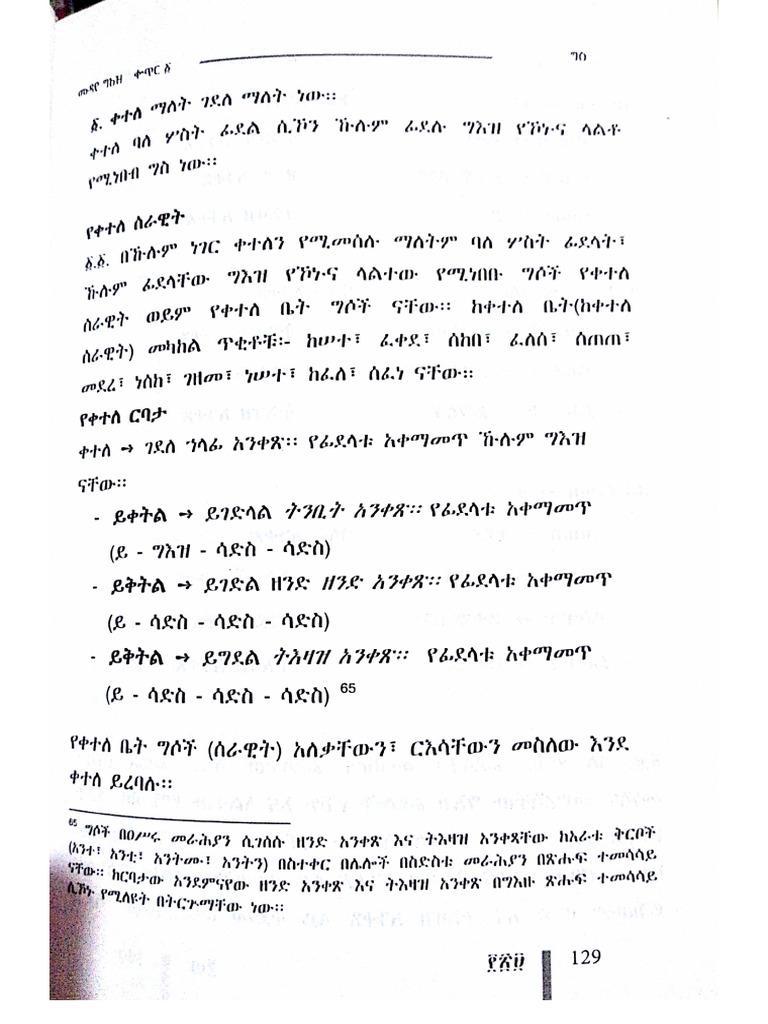 ሙዳየ ግእዝ ቀጥር ፩ ግስ
፩. ቀተለ ማለት ገደለ ማለት ነው።
ቀተለ ባለ ሦስት ፊደል ሲኾን ኹሉም ፊደሉ ግእዝ የኾኑና ላልቶ
የሚነበብ ግስ ነው።
የቀተለ ሰራዊት
፩.፩. በኹሉም ነገር ቀተለን የሚመስሉ ማለትም ባለ ሦስት ፊደላት፣
ኹሉም ፊደላቸው ግእዝ የኾኑና ላልተው የሚነበቡ ግሶች የቀተለ
ሰራዊት ወይም የቀተለ ቤት ግሶች ናቸው። ከቀተለ ቤት(ከቀተለ
ሰራዊት) መካከል ጥቂቶቹ፦ ከሠተ፣ ፈቀደ፣ ሰከበ፣ ፈለሰ፣ ሰጠጠ፣
መደረ፣ ነሰከ፣ ገዘመ፣ ነሠተ፣ ከፈለ፣ ሰፈነ ናቸው።
የቀተለ ርባታ
ቀተለ → ገደለ ኀላፊ አንቀጽ። የፊደላቱ አቀማመጥ ኹሉም ግእዝ
ናቸው።
- ይቀትል → ይገድላል ትንቢት አንቀጽ። የፊደላቱ አቀማመጥ
(ይ - ግእዝ - ሳድስ - ሳድስ)
- ይቅትል → ይገድል ዘንድ ዘንድ አንቀጽ። የፊደላቱ አቀማመጥ
(ይ - ሳድስ - ሳድስ - ሳድስ)
- ይቅትል → ይግደል ትእዛዝ አንቀጽ። የፊደላቱ አቀማመጥ
(ይ - ሳድስ - ሳድስ - ሳድስ) 65
የቀተለ ቤት ግሶች (ሰራዊት) አለቃቸውን፣ ርእሳቸውን መስለው እንደ
ቀተለ ይረባሉ።
65 ግሶች በዐሥሩ መራሕያን ሲገሰሱ ዘንድ አንቀጽ እና ትእዛዝ አንቀጻቸው ከአራቱ ቅርቦች
(አንተ፣ አንቲ፣ አንትሙ፣ አንትን) በስተቀር በሌሎች በስድስቱ መራሕያን በጽሑፍ ተመሳሳይ
ናቸው። ከርባታው እንደምናየው ዘንድ አንቀጽ እና ትእዛዝ አንቀጽ በግእዙ ጽሑፍ ተመሳሳይ
ሲኾኑ የሚለዩት በትርጒማቸው ነው።
፻፳፱ 129